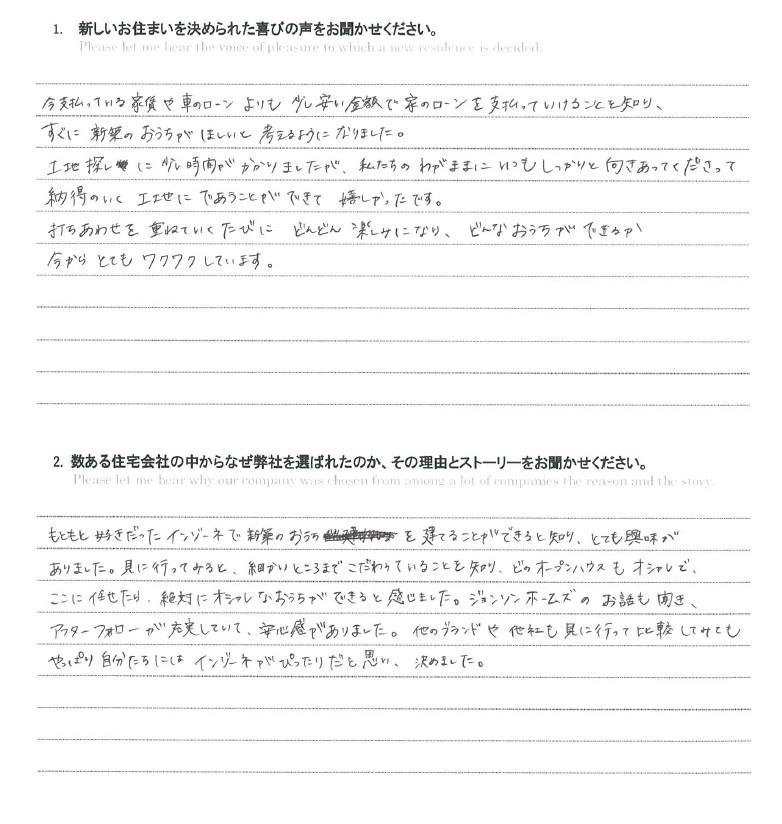 1. 新しいお住まいを決められた喜びの声をお聞かせください。
Please let me hear the voice of pleasure to which a new residence is decided.
今支払っている家賃や車のローンよりも少し安い金額で家のローンを支払っていけることを知り、
すぐに新築のおうちがほしいと考えるようになりました。
土地探しに少し時間がかかりましたが、私たちのわがままにいつもしっかりと向きあってくださって
納得のいく土地にであうことができて嬉しかったです。
打ちあわせを重ねていくたびにどんどん楽しみになり、どんなおうちができるか
今からとてもワクワクしています。
2. 数ある住宅会社の中からなぜ弊社を選ばれたのか、その理由とストーリーをお聞かせください。
Please let me hear why our company was chosen from among a lot of companies the reason and the story.
もともと好きだったインゾーネで新築のおうちを建てることができると知り、とても興味が
ありました。見に行ってみると、細かいところまでこだわっていることを知り、どのオープンハウスもオシャレで、
ここに任せたら、絶対にオシャレなおうちができると感じました。ジョンソンホームズのお話も聞き、
アフターフォローが充実していて、安心感がありました。他のブランドや他社も見に行って比較してみても
やっぱり自分たちにはインゾーネがぴったりだと思い、決めました。